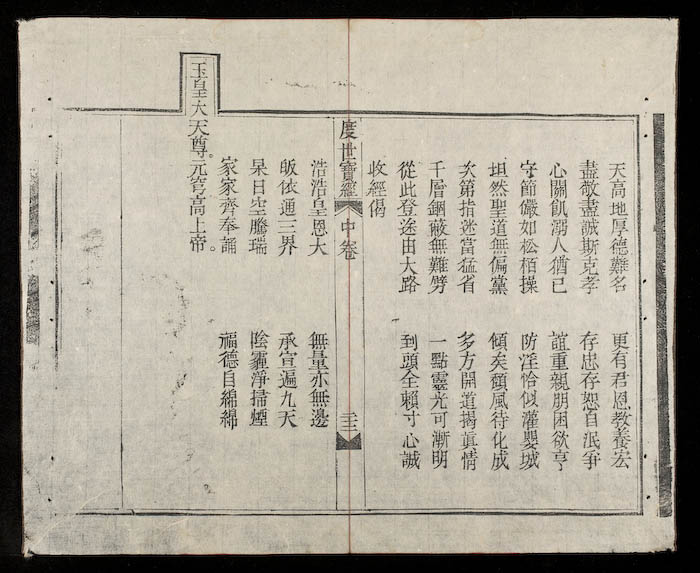 天高地厚德難名　更有君恩教養宏
盡敬盡誠斯克孝　存忠存恕自泯爭
心關飢溺人猶己　誼重親朋困欲亨
守節儼如松栢操　防淫恰似灌嬰城
坦然聖道無偏黨　傾矣頹風待化成
次第指迷當猛省　多方開道揭眞情
千層錮蔽無難劈　一點靈光可漸明
從此登途由大路　到頭全賴寸心誠
收經偈
度世寶經　中卷　二十二
浩浩皇恩大　無量亦無邊
皈依通三界　承宣遍九天
杲日空騰瑞　陰霾淨掃煙
家家齊奉誦　福德自綿綿
玉皇大天尊。元穹高上帝。